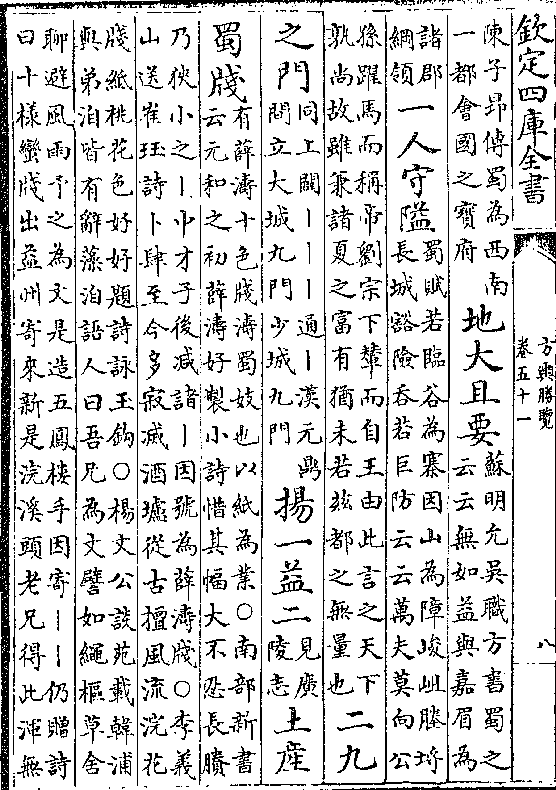 欽定四庫全書
方輿勝覽
卷五十一
八
陳子昂傳蜀為西南
一都會國之寶府
地大且要
蘇明允吳職方書蜀之
云云無如益與嘉眉為
諸郡
綱領
一人守隘
蜀賦若臨谷為塞因山為障峻岨塍埒
長城豁險吞若巨防云云萬夫莫向公
孫躍馬而稱帝劉宗下輦而自王由此言之天下
孰尚故雖兼諸夏之富有猶未若兹都之無量也
二九
之門
同上闢丨丨丨丨通丨漢元鼎
間立大城九門少城九門
揚一益二
見廣
陵志
土産
蜀牋
有薛濤十色牋濤蜀妓也以紙為業○南部新書
云元和之初薛濤好製小詩惜其幅大不忍長賸
乃狹小之丨中才子後减諸丨因號為薛濤牋○李義
山送崔珏詩卜肆至今多寂滅酒壚從古擅風流浣花
牋紙桃花色好好題詩詠玉鈎○楊文公談苑載韓浦
與弟洎皆有辭藻洎語人曰吾兄為文譬如繩樞草舍
聊避風雨予之為文是造五鳳樓手因寄丨丨仍贈詩
曰十樣蠻牋出益州寄來新是浣溪頭老兄得此渾無